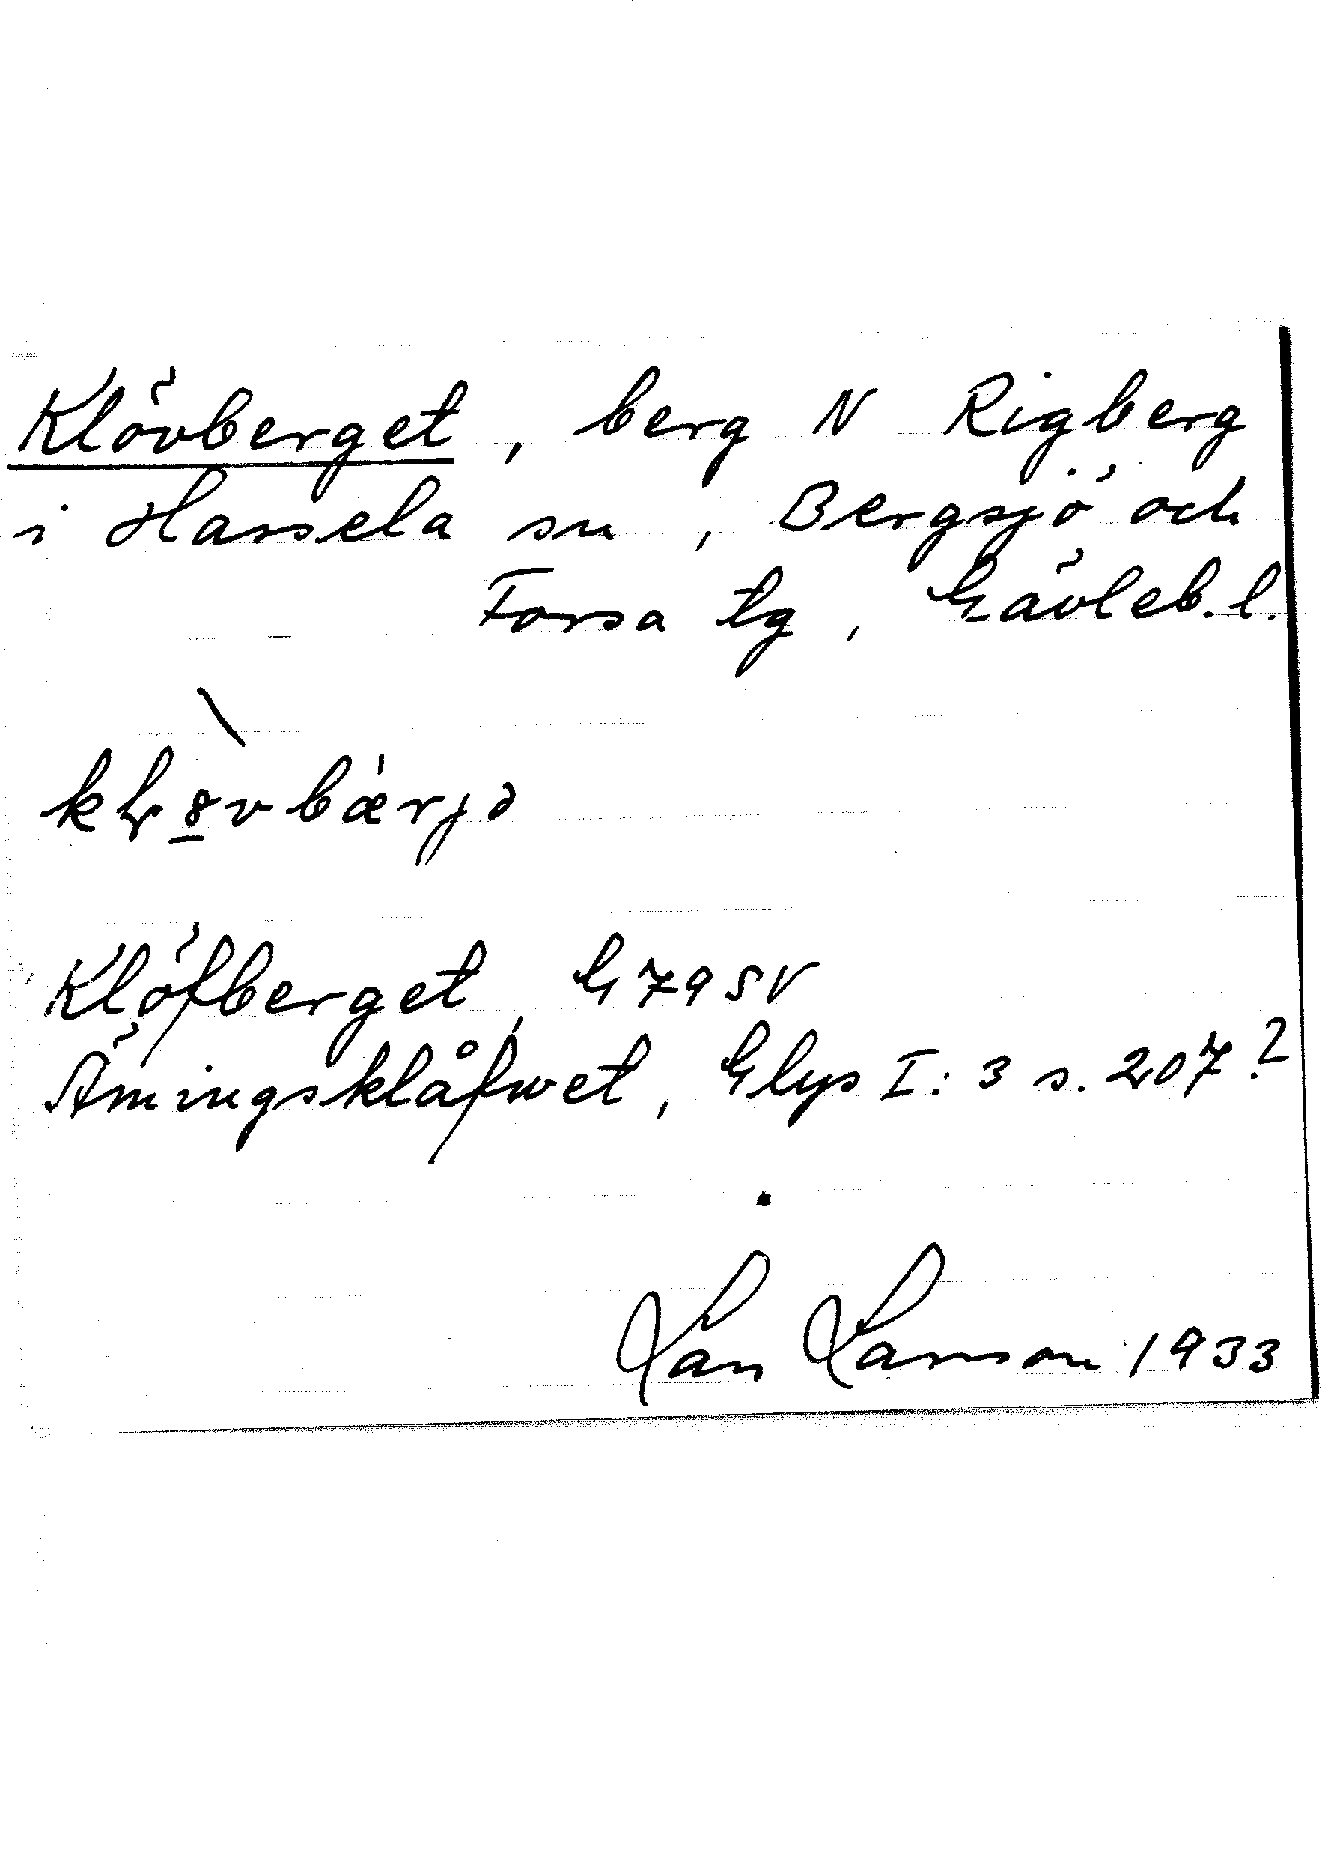 Klövberget, berg N Rigberg
i Hassela sn, Bergsjö och
Forsa tg, Gävleb. l.
Klöfberget, G 79 SV
Ämingsklåfwet, Glys I: 3 s. 207?
Lars Larsson 1933